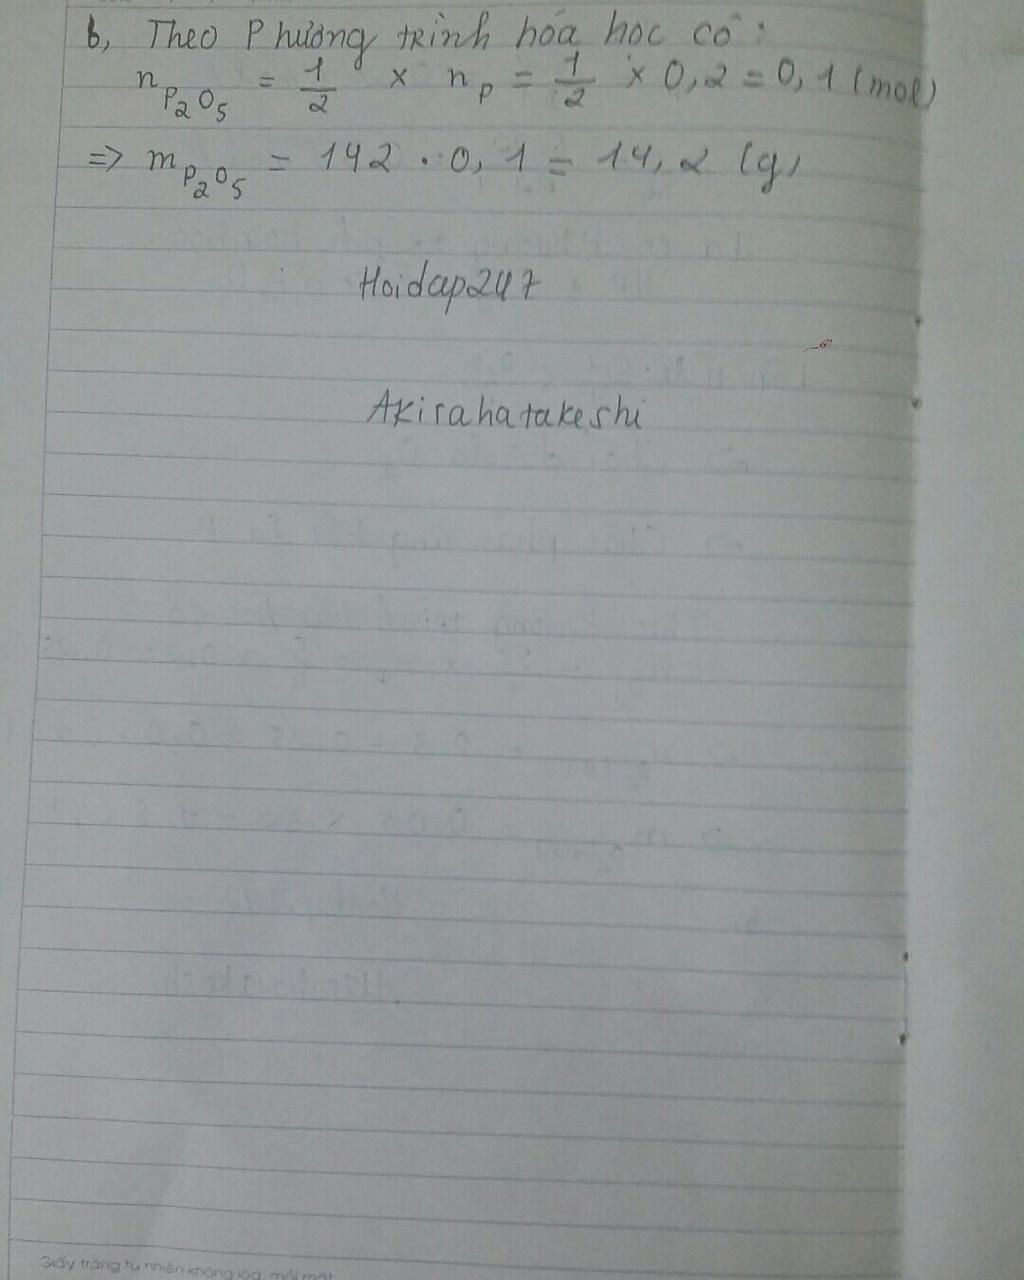 b, Theo Phương trình hóa học có:
n P2O5 = 1/2 x n P = 1/2 x 0,2 = 0,1 (mol)
=> m P2O5 = 142 . 0,1 = 14,2 (g)
Hoidap247
Akirahatakeshi
Giấy trắng tự nhiên không loá, mỏi mắt